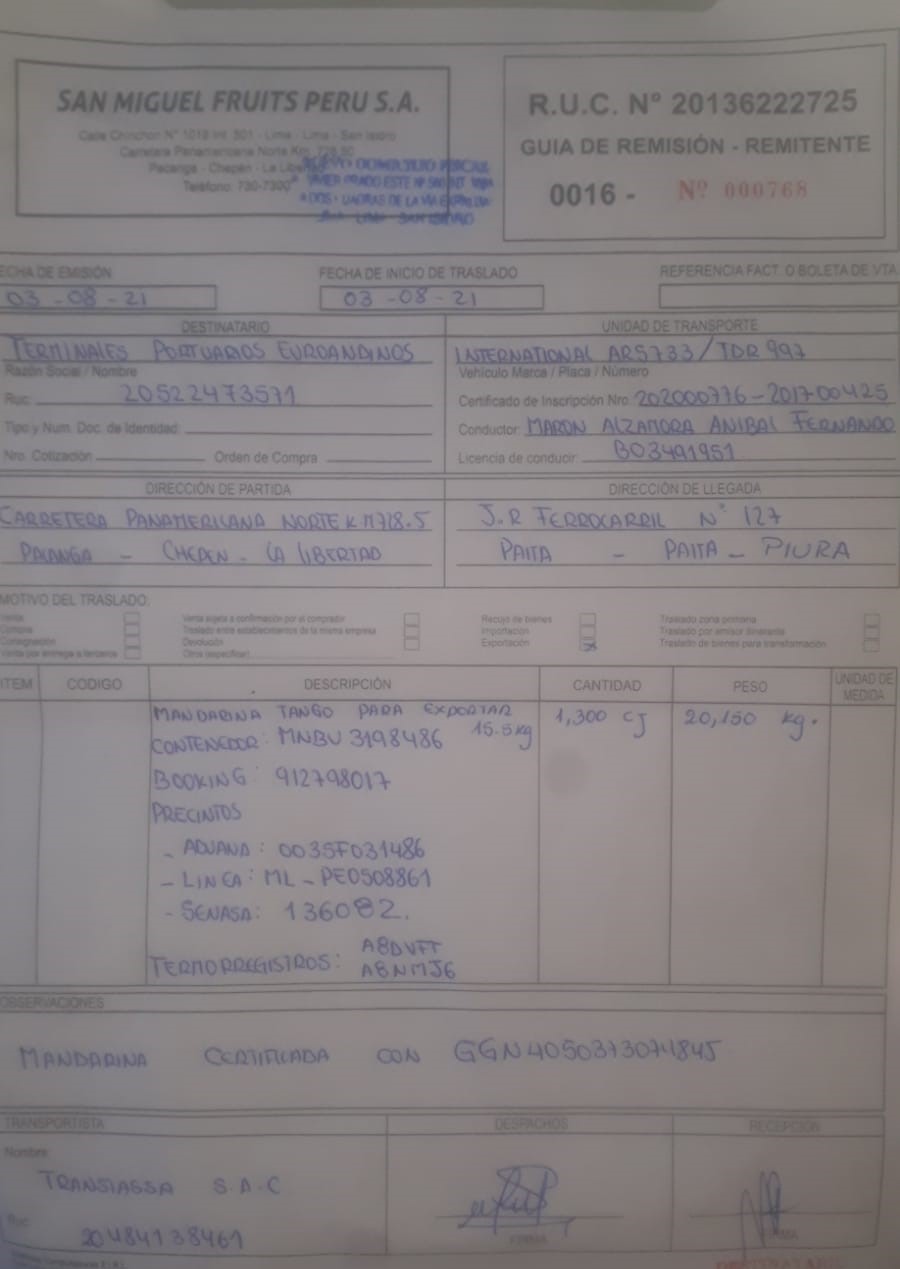 SAN MIGUEL FRUITS PERU S.A.
Calle Chinchon N° 1018 Int. 301 - Lima - Lima - San Isidro
Carretera Panamericana Norte Km. 728.50
Pacanga - Chepén - La Libertad
Teléfono: 730-7300
DOMICILIO FISCAL
JAVIER PRADO ESTE Nº
DE LA VIA
LIMA SAN ISIDRO
R.U.C. N° 20136222725
GUIA DE REMISIÓN - REMITENTE
0016 - Nº 000768
ECHA DE EMISIÓN
03 - 08 - 21
FECHA DE INICIO DE TRASLADO
03 - 08 - 21
REFERENCIA FACT. O BOLETA DE VTA
DESTINATARIO
TERMINALES PORTUARIOS EUROANDINOS
Razón Social / Nombre
Ruc: 20522473571
Tipo y Num. Doc. de Identidad:
Nro. Cotización Orden de Compra
UNIDAD DE TRANSPORTE
INTERNATIONAL ARS733/TDR997
Vehículo Marca / Placa / Número
Certificado de Inscripción Nro. 202000776-201700425
Conductor: MARON ALZAMORA ANIBAL FERNANDO
Licencia de conducir: B03491951
DIRECCIÓN DE PARTIDA
CARRETERA PANAMERICANA NORTE K.M728.5
PACANGA - CHEPEN - LA LIBERTAD
DIRECCIÓN DE LLEGADA
J.R FERROCARRIL N° 127
PAITA - PAITA - PIURA
MOTIVO DEL TRASLADO:
Venta
Compra
Consignación
Venta por entrega a terceros
Venta sujeta a confirmación por el comprador
Traslado entre establecimientos de la misma empresa
Devolución
Otros (especificar)
Recojo de bienes
Importación
Exportación
Traslado zona primaria
Traslado por emisor itinerante
Traslado de bienes para transformación
ITEM CODIGO DESCRIPCIÓN CANTIDAD PESO UNIDAD DE MEDIDA
MANDARINA TANGO PARA EXPORTAR 1,300 CJ 20,150 kg.
15.5kg
CONTENEDOR: MNBU 3198486
BOOKING: 912798017
PRECINTOS
- ADUANA: 0035F031486
- LINEA: ML-PE0508861
- SENASA: 136082.
TERMORREGISTROS: A8DVFT
A8NMJ6
OBSERVACIONES
MANDARINA CERTIFICADA CON GGN4050373074845
TRANSPORTISTA
Nombre:
TRANSIASSA S.A.C
Ruc:
20484138461
DESPACHOS
FIRMA
RECEPCIÓN
FIRMA
DESTINATARIO